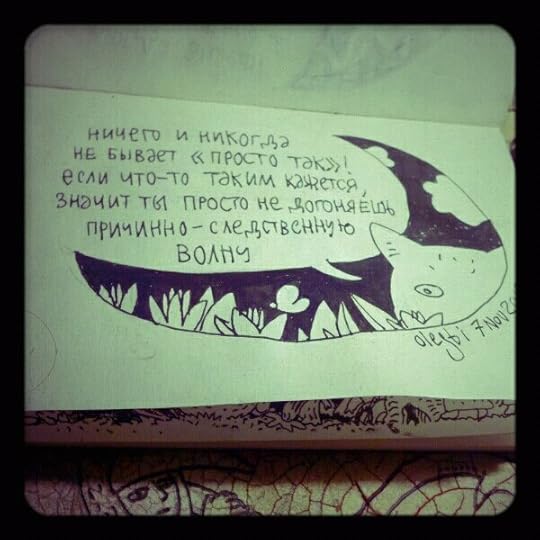 ничего и никогда
не бывает «просто так»!
если что-то таким кажется,
значит ты просто не догоняешь
причинно-следственную
волну
olegti 7 Nov 2